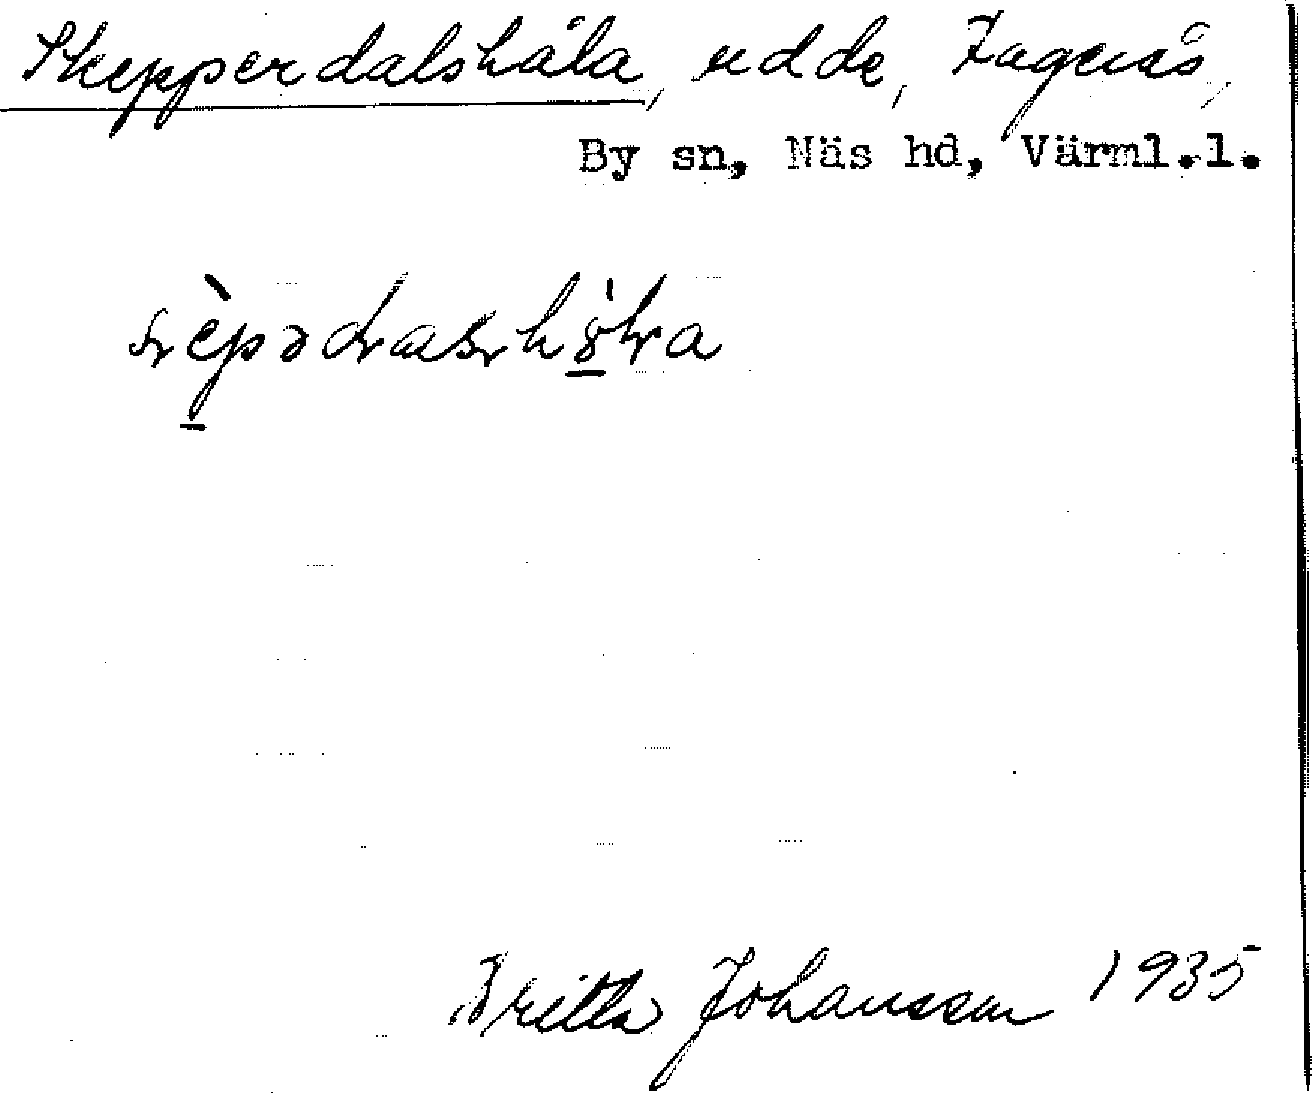 Skepperdalshåla, udde, Fagerås,
By sn, Näs hd, Värml.l.
Britta Johansson 1935